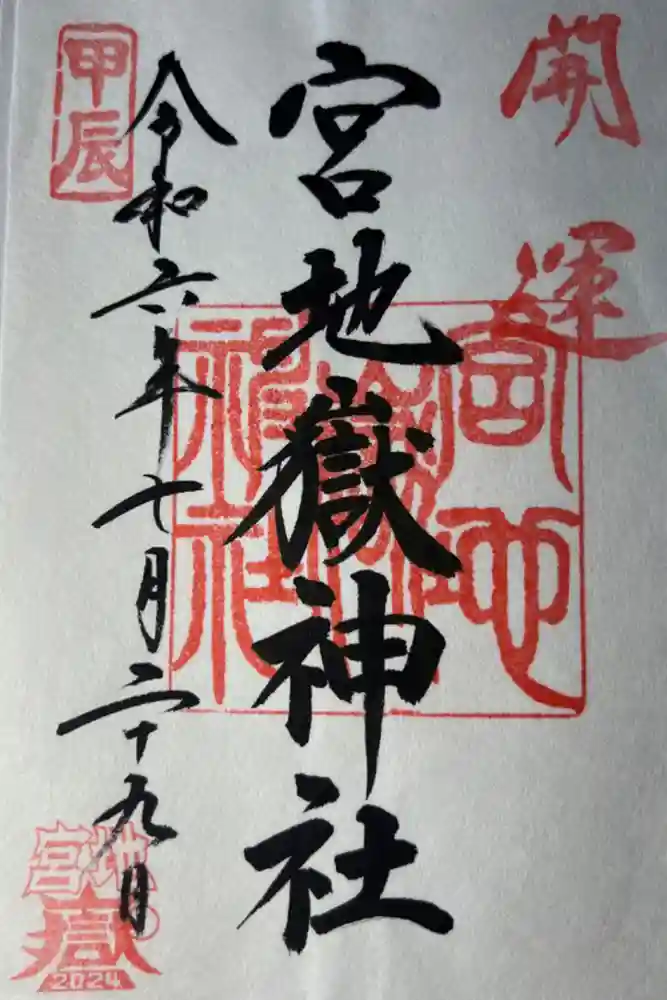 開運
宮地嶽神社
宮地嶽神社
令和六年十月二十九日
甲辰
宮地嶽
2024